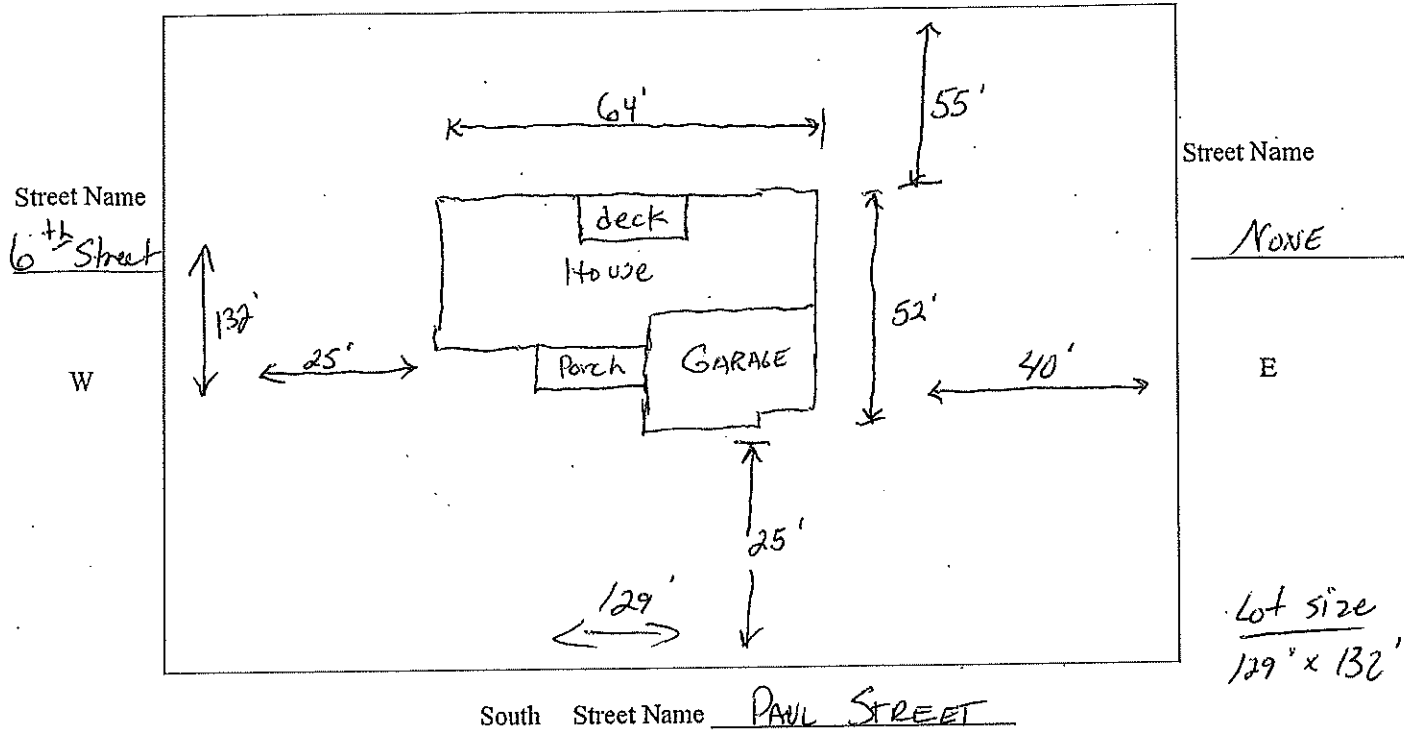 64'
55'
Street Name
Street Name
deck
6th Street
NONE
House
132'
52'
25'
Porch
GARAGE
40'
W
E
25'
129'
Lot size
129' x 132'
South Street Name PAUL STREET